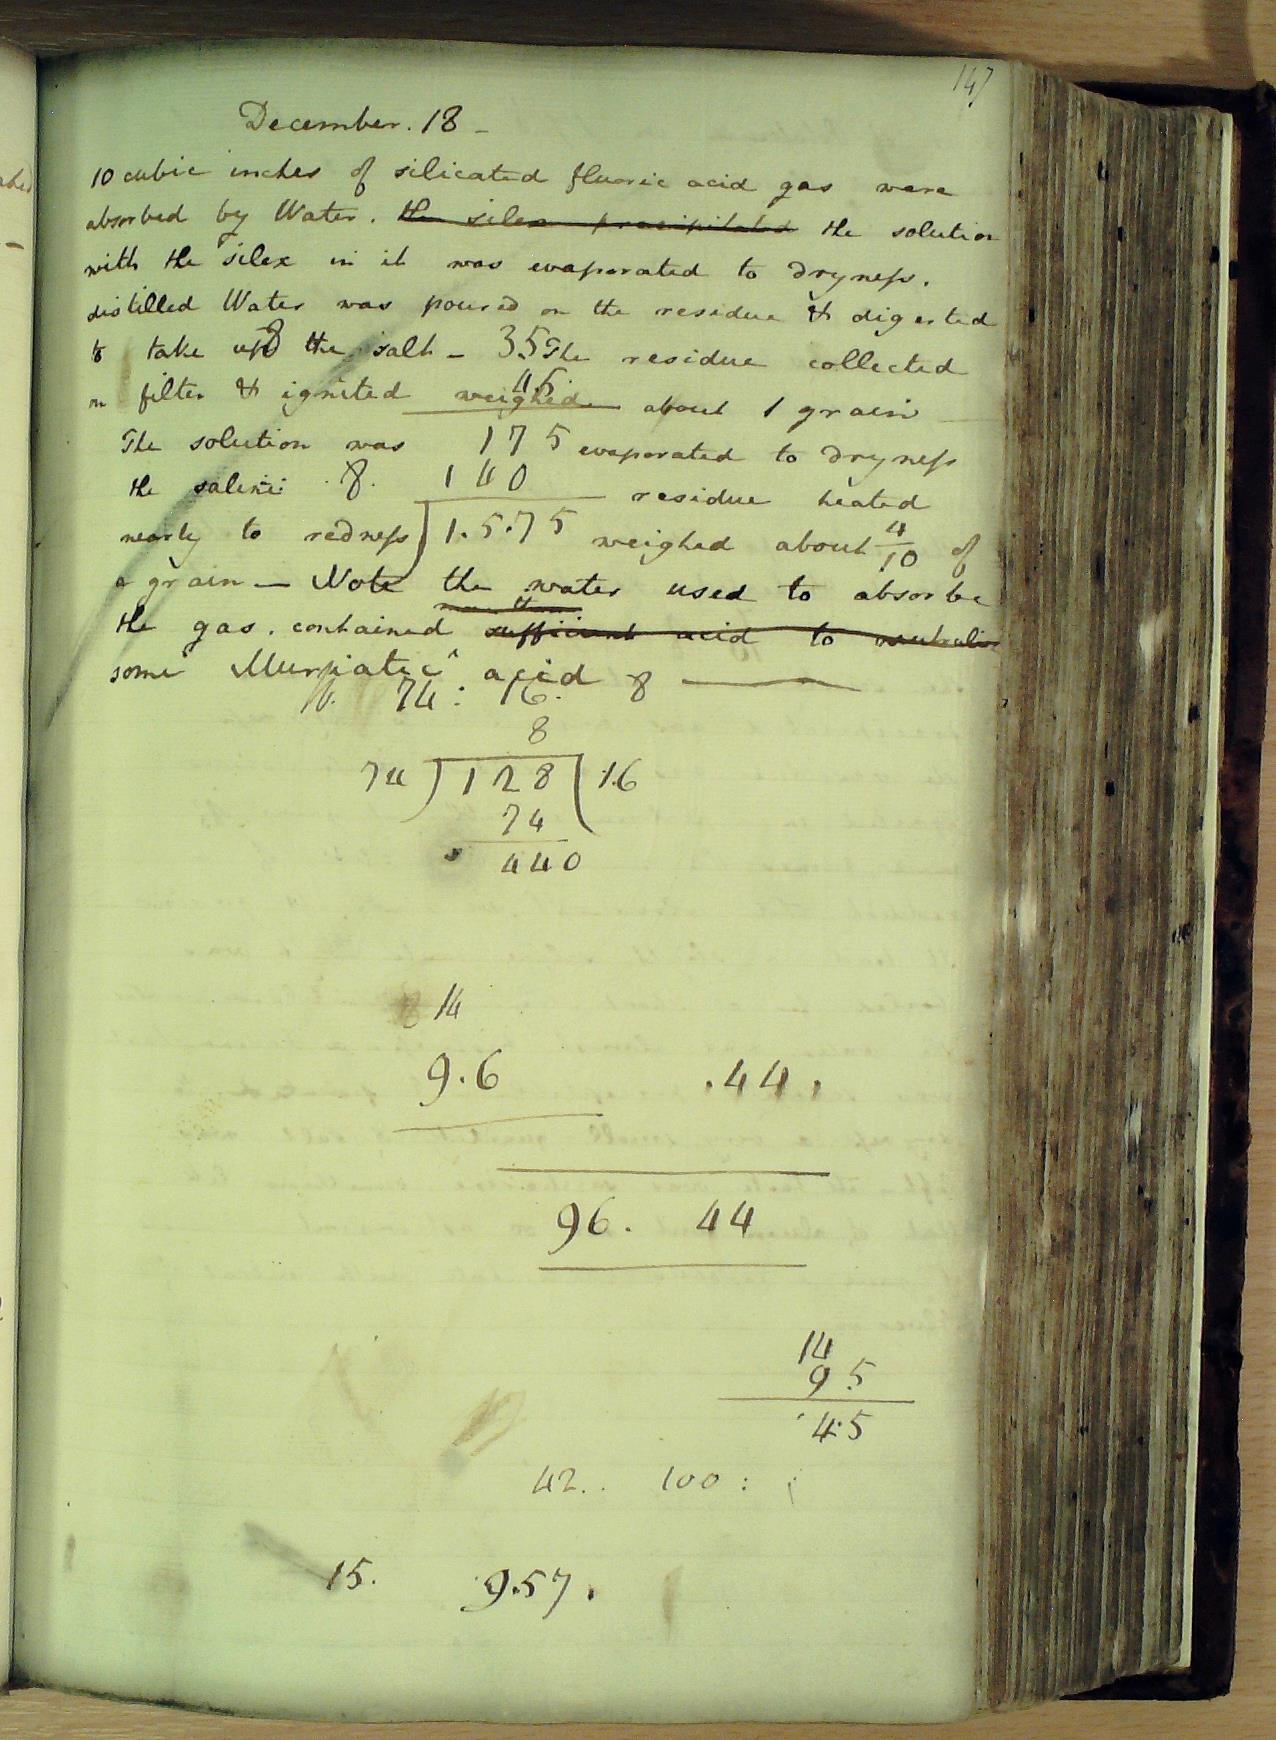 147
December. 18 -
10 cubic inches of silicated fluoric acid gas were
absorbed by Water. the silex precipitated the solution
with the silex in it was evaporated to dryness.
distilled Water was poured on the residue & digested
to take up the salt - 35 The residue collected
on filter & ignited weighed about 1 grain
45
The solution was 175 evaporated to dryness
the saline 8. 140 residue heated
nearly to redness 1.5.75 weighed about 4/10 of
a grain — Note the water used to absorbe
more than
the gas. contained sufficient acid to neutralise
some Muriatic acid 8 —
74 : 16.
8
74 ) 128 ( 1.6
74
440
14
9.6 .44.
96. 44
14
95
45
42.. 100 :
15. 9.57.